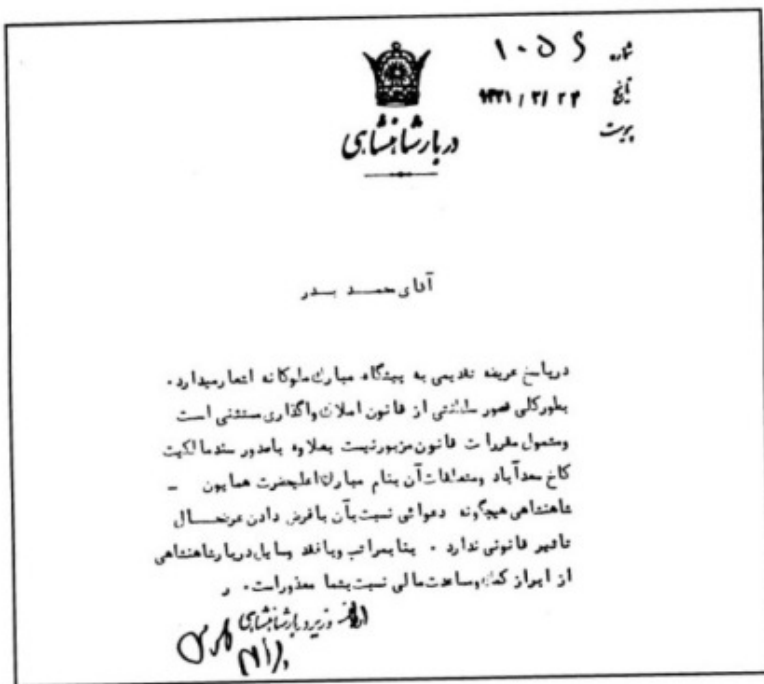 شماره ۱۰۵۶
تاریخ ۲۴ / ۳ /
پیوست
دربار شاهنشاهی
آقای محمد بدر
درپاسخ عریضه تقدیمی به پیشگاه مبارک ملوکانه اشعار میدارد .
بطورکلی قصور سلطنتی از قانون املاک واگذاری مستثنی است
ومشمول مقررات قانون مزبور نیست بعلاوه باصدور سند مالکیت
کاخ سعدآباد ومتعلقات آن بنام مبارک اعلیحضرت همایون –
شاهنشاهی هیچگونه دعوائی نسبت بآن بافرض دادن عرضحال
تاثیر قانونی ندارد . بنابمراتب وبا فقد وسایل دربار شاهنشاهی
از ابراز کمک ومساعدت مالی نسبت بشما معذور است . ر
وزیر دربار شاهنشاهی